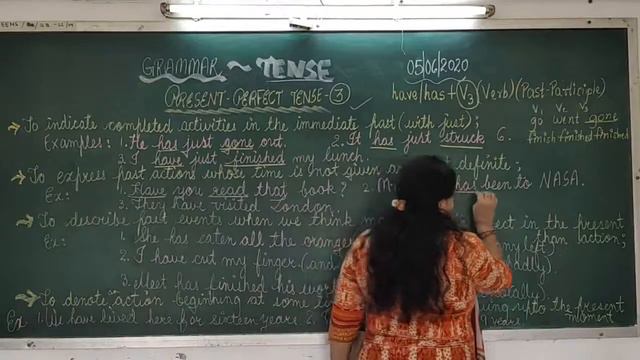 GRAMMAR ~ TENSE
05/06/2020
PRESENT-PERFECT TENSE-③
have/has + V3 (Verb) (Past-Participle)
V1 V2 V3
go went gone
finish finished finished
→ To indicate completed activities in the immediate past (with just);
Examples: 1. He has just gone out. 2. It has just struck 6.
3. I have just finished my lunch.
→ To express past actions whose time is not given definite;
Ex: 1. Have you read that book? 2. has been to NASA.
3. They have visited London.
→ To describe past events when we think in the present
than action;
Ex: 1. She has eaten all the oranges left)
2. I have cut my finger (and
3. Meet has finished his
→ To denote action beginning at some upto the present
moment
Ex. 1. We have lived here for sixteen years. years.